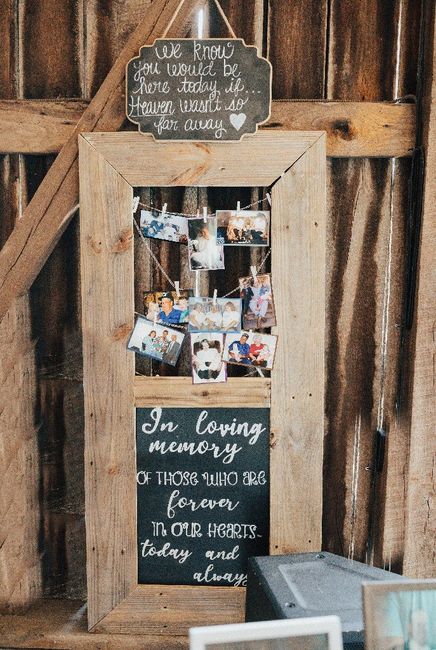 We know
you would be
here today if...
Heaven wasn't so
far away
In loving
memory
OF THOSE WHO ARE
forever
IN OUR HEARTS-
today and
always